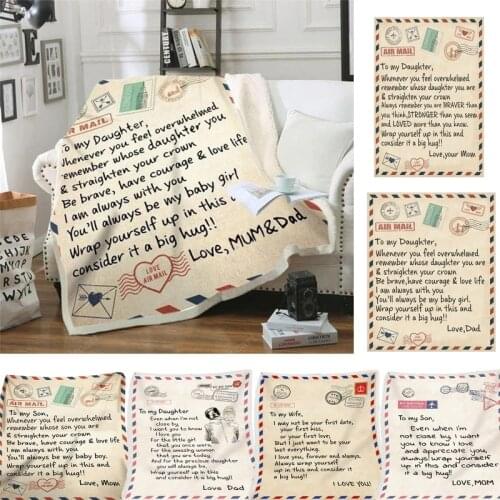 AIR MAIL
To my Daughter,
Whenever you feel overwhelmed
remember whose daughter you are
& straighten your crown
Be brave, have courage & love life
I am always with you
You'll always be my baby girl
Wrap yourself up in this and
consider it a big hug!!
Love, MUM&Dad
LOVE
AIR MAIL
AIR MAIL
To my Daughter,
Whenever you feel overwhelmed
remember whose daughter you are
& straighten your crown
Always remember you are BRAVER than
you think,STRONGER than you seem
and LOVED more than you know.
Wrap yourself up in this and
consider it a big hug!!
Love,your Mom
To my Daughter,
Whenever you feel overwhelmed
remember whose daughter you are
& straighten your crown
Be brave,have courage & love life
I am always with you
You'll always be my baby girl.
Wrap yourself up in this and
consider it a big hug!!
Love,Dad
AIR MAIL
To my Son,
Whenever you feel overwhelmed
remember whose son you are
& straighten your crown
Be brave, have courage & love life
I am always with you
You'll always be my baby boy.
Wrap yourself up in this and
consider it a big hug!!
Love, MOM
To my Daughter
Even when I'm not
close by
I want you to know
I love you
For the little girl
that you once were,
For the amazing woman
that you are today
And for the precious daughter
you will always be.
Wrap yourself up in this
and consider it a big hug!
Love Dad
To my Wife,
I may not be your first date,
your first kiss,
or your first love.
But I just want to be
your last everything.
I love you, forever and always.
Always wrap yourself
up in this blanket
and consider it a big hug!!
I Love YOU!
To my Son,
Even when I'm
not close by I want
you to know I love
and appreciate you,
always wrap yourself
up in this and consider
it a big hug!
Love, Mom